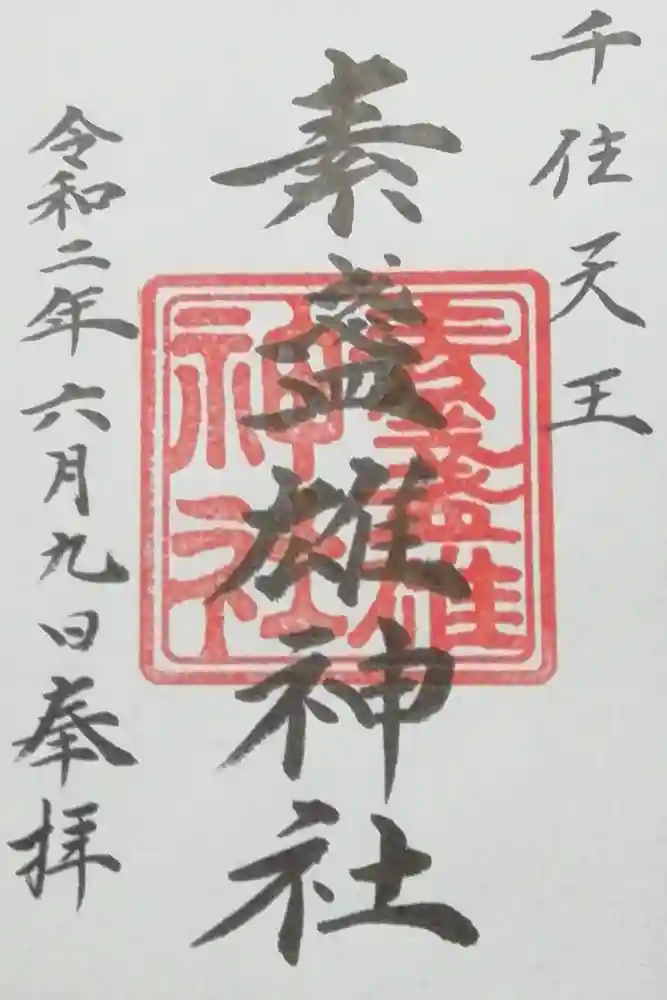 千住天王
素盞雄神社
素盞雄
神社
令和二年六月九日奉拝